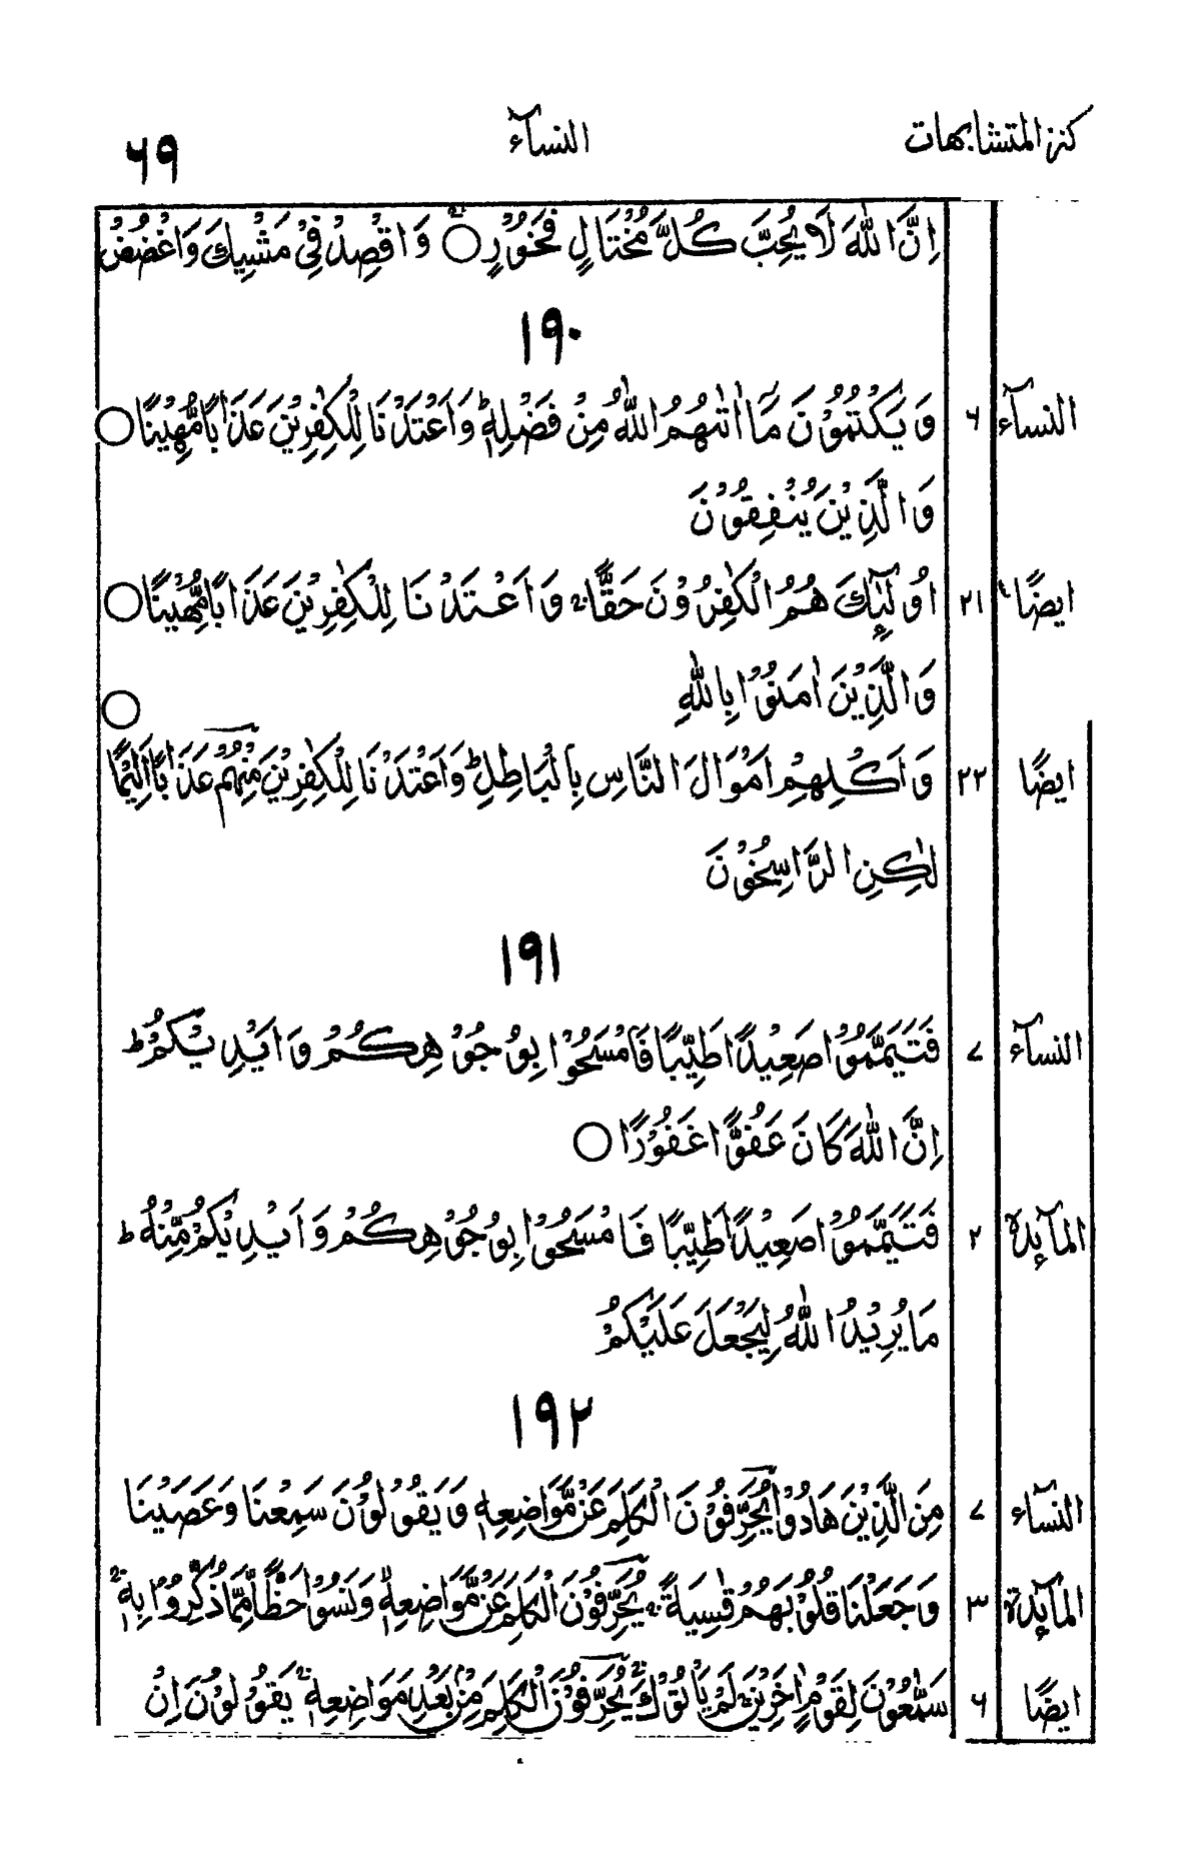 كنز المتشابهات النسآء ٦٩
اِنَّ اللّٰهَ لَا يُحِبُّ كُلَّ مُخْتَالٍ فَخُوْرٍ ○ وَاقْصِدْ فِيْ مَشْيِكَ وَاغْضُضْ
١٩٠
النسآء ٦ وَيَكْتُمُوْنَ مَآ اٰتٰىهُمُ اللّٰهُ مِنْ فَضْلِهٖ ؕ وَاَعْتَدْنَا لِلْكٰفِرِيْنَ عَذَابًا مُّهِيْنًا ○
وَالَّذِيْنَ يُنْفِقُوْنَ
ايضًا ٢١ اُولٰٓئِكَ هُمُ الْكٰفِرُوْنَ حَقًّا ۚ وَاَعْتَدْنَا لِلْكٰفِرِيْنَ عَذَابًا مُّهِيْنًا ○
وَالَّذِيْنَ اٰمَنُوْا بِاللّٰهِ
ايضًا ٢٢ وَاَكْلِهِمْ اَمْوَالَ النَّاسِ بِالْبَاطِلِ ؕ وَاَعْتَدْنَا لِلْكٰفِرِيْنَ مِنْهُمْ عَذَابًا اَلِيْمًا ○
لٰكِنِ الرَّاسِخُوْنَ
١٩١
النسآء ٧ فَتَيَمَّمُوْا صَعِيْدًا طَيِّبًا فَامْسَحُوْا بِوُجُوْهِكُمْ وَاَيْدِيْكُمْ ؕ
اِنَّ اللّٰهَ كَانَ عَفُوًّا غَفُوْرًا ○
المآئدة ٢ فَتَيَمَّمُوْا صَعِيْدًا طَيِّبًا فَامْسَحُوْا بِوُجُوْهِكُمْ وَاَيْدِيْكُمْ مِّنْهُ ؕ
مَا يُرِيْدُ اللّٰهُ لِيَجْعَلَ عَلَيْكُمْ
١٩٢
النسآء ٧ مِنَ الَّذِيْنَ هَادُوْا يُحَرِّفُوْنَ الْكَلِمَ عَنْ مَّوَاضِعِهٖ وَيَقُوْلُوْنَ سَمِعْنَا وَعَصَيْنَا
المآئدة ٣ وَجَعَلْنَا قُلُوْبَهُمْ قٰسِيَةً ۚ يُحَرِّفُوْنَ الْكَلِمَ عَنْ مَّوَاضِعِهٖ ۙ وَنَسُوْا حَظًّا مِّمَّا ذُكِّرُوْا بِهٖ ۚ
ايضًا ٦ سَمّٰعُوْنَ لِقَوْمٍ اٰخَرِيْنَ ۙ لَمْ يَاْتُوْكَ ؕ يُحَرِّفُوْنَ الْكَلِمَ مِنْۢ بَعْدِ مَوَاضِعِهٖ ۚ يَقُوْلُوْنَ اِنْ